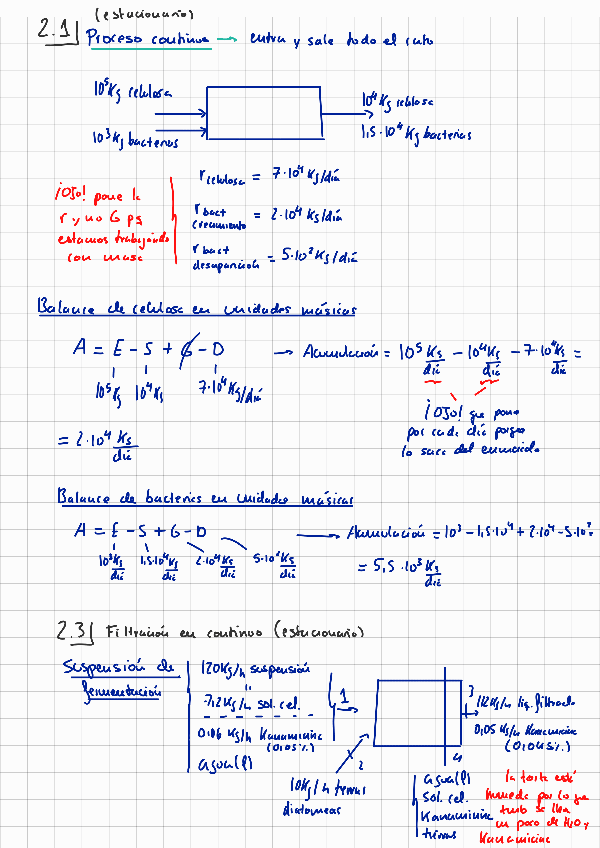 (estacionario)
2.1 Proceso continuo → entra y sale todo el rato
10⁵ Kg celulosa
10³ Kg bacterias
10⁴ Kg celulosa
1,5·10⁴ Kg bacterias
¡Ojo! pone la
r y no G pq
estamos trabajando
con masa
r celulosa = 7·10⁴ Kg/día
r bact crecimiento = 2·10⁴ Kg/día
r bact desaparición = 5·10² Kg/día
Balance de celulosa en unidades másicas
A = E - S + G - D → Acumulación = 10⁵ Kg/día - 10⁴ Kg/día - 7·10⁴ Kg/día =
10⁵ Kg 10⁴ Kg 7·10⁴ Kg/día
= 2·10⁴ Kg/día
¡Ojo! que pone
por cada día porque
lo saca del enunciado
Balance de bacterias en unidades másicas
A = E - S + G - D → Acumulación = 10³ - 1,5·10⁴ + 2·10⁴ - 5·10²
10³ Kg/día 1,5·10⁴ Kg/día 2·10⁴ Kg/día 5·10² Kg/día
= 5,5·10³ Kg/día
2.3 Filtración en continuo (estacionario)
Suspensión de
fermentación
120 Kg/h suspensión
7,2 Kg/h sol. cel.
0,06 Kg/h Kanamicina
(0,05%)
agua(l)
1
2
10 Kg/h tierras
diatomeas
3
112 Kg/h liq. filtrado
0,05 Kg/h Kanamicina
(0,045%)
4
agua(l)
sol. cel.
Kanamicina
tierras
la torta está
húmeda por lo que
tmb se lleva
un poco de H₂O y
Kanamicina